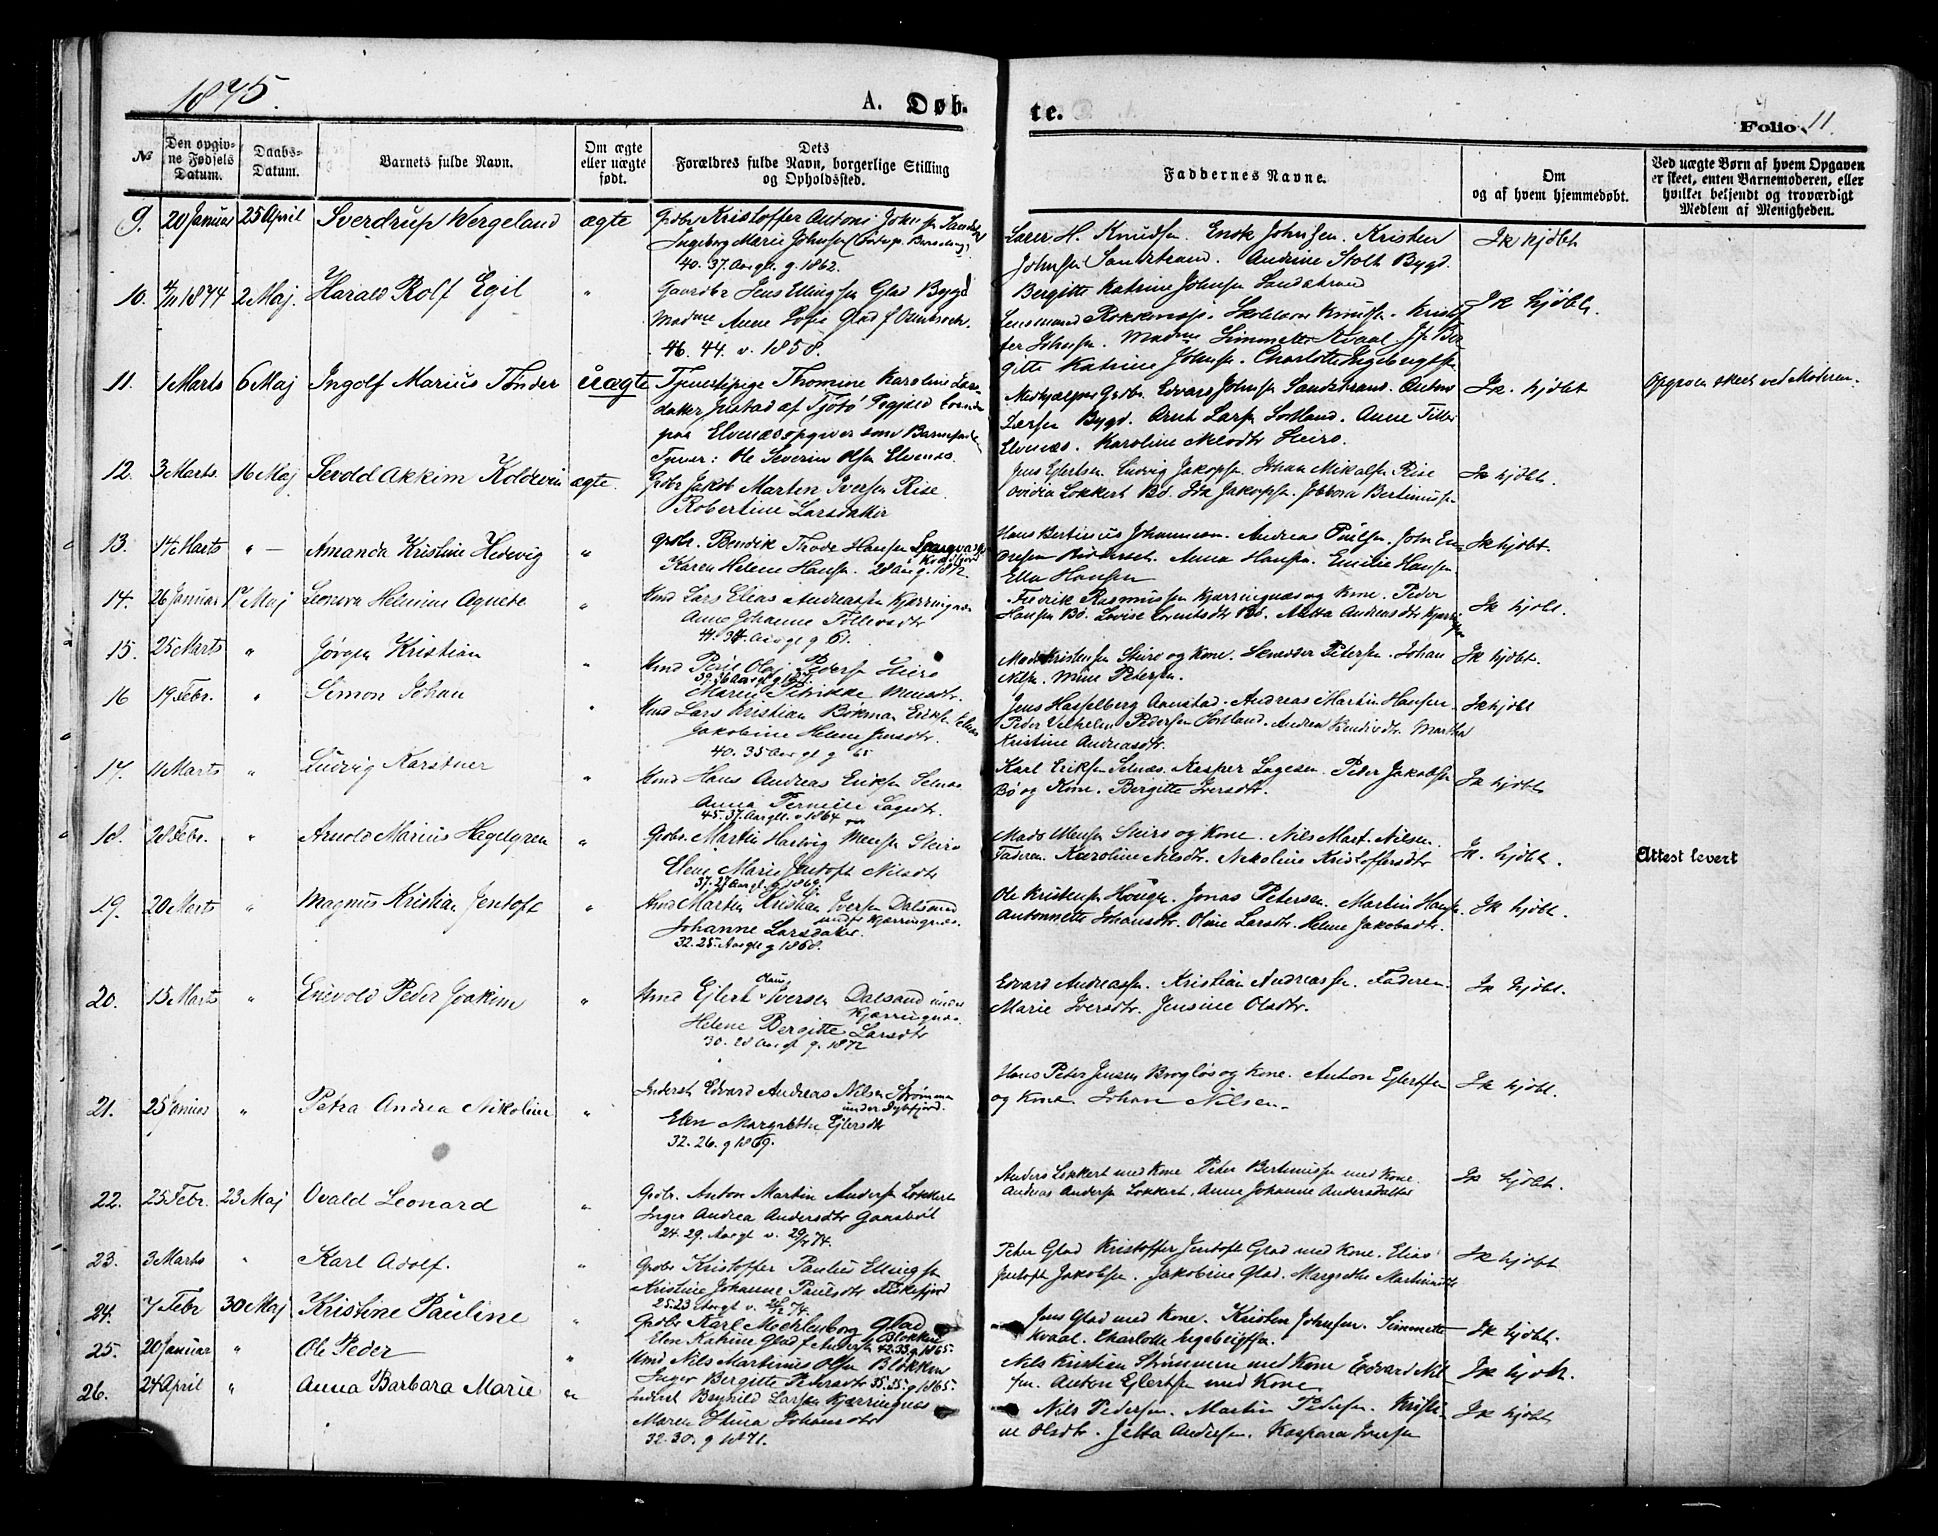 1875.
A. Døb-
te.
Folio 11
№
Den opgiv-
ne Fødsels
Datum.
Daabs-
Datum.
Barnets fulde Navn.
Om ægte
eller uægte
født.
Dets
Forældres fulde Navn, borgerlige Stilling
og Opholdssted.
Faddernes Navne.
Om
og af hvem hjemmedøbt.
Ved uægte Børn af hvem Opgaven
er skeet, enten Barnemoderen, eller
hvilket bekjendt og troværdigt
Medlem af Menigheden.
9. 20 Januar 25 April Sverdrup Wergeland ægte Gdbr Kristoffer Anton Johnsen
Ingeborg Marie Johnsen
40. 37. Aargl. g. 1862.
Knudsen. Enok Johnsen. Kristen
Johnsen Sandstrand. Andrine Stolt Bygd.
Bergitte Katrine Johnsen Sandstrand
Ik hjøbt
10. 4/11 1874 2 Maj. Harald Rolf Egil " Gaardbr Jens Ellingsen Glad Bygd
Madme Anne Sofie Glad f.
46. 44. v. 1858.
Lensmand Skolelærer Knudsen. Kristof-
fer Johnsen. Madme Simmette Kvaal. Be-
gitte Katrine Johnsen. Charlotte Ingebergtsen
Ik hjøbt.
11. 1 Marts 6 Maj Ingolf Marius Tønder uægte Tjenestepige Thomine Karoline Lars
daker af Tjøtø
paa Elvenæs opgiver som Barnefader
Tjener: Ole Severin Olsen Elvenæs
Gdbr. Edvard Johnsen Sandstrand. Anton
Bygd. Arnt Larsen Sortland. Anne
Elvenæs. Karoline Steiro.
Ik. hjøbt
Opgaven skeet ved Moderen.
12. 3 Marts. 16 Maj Sevold Akkim Koldevin ægte. Gdbr Jakob Marten Iversen Rise
Robertine Larsdatter
Jens Ejlertsen. Ludvig Jakopsen. Johan Mikalsen Rise
Lokkert Bø. Ida Jakopsen. Bertinussen
Ik hjøbt.
13. 14 Marts " — Amanda Kristine Hedevig " Gdbr. Bendik Thode Hansen
Karen Helene Hansen. 28 Aar g. 1872.
Hans Bertinius Johannesen. Andreas Paulsen. John En-
Anna Hansen. Emilie Hansen
Ella Hansen
Ik hjøbt.
14. 26 Januar 17 Maj Leonora Helmine Agnete " Hmd Lars Elias Andreassen Kjærringnæs
Anne Johanne Tollevsdtr
41. 34. Aargl g 61.
Fredrik Rasmussen Kjærringnæs og Kone. Peder
Hansen Bø. Lovise Lorentsdtr Bø. Andreasdtr
Ik hjøbt.
15. 25 Marts " Jørgen Kristian " Hmd Peder Olaj Pedersen Steiro
Maren Petrikke Mensdtr.
Mads Kristensen Steiro og Kone. Petersen. Johan
Nilsen. Mine Petersen.
Ik hjøbt.
16 19 Febr. " Simon Johan " Hmd Lars Kristian Bøkman Eriksen Selnæs
Jakobine Helene Jensdtr.
40. 35 Aar gl g 65
Jens Hasselberg Aanstad. Andreas Martin Hansen.
Peder Vilhelm Pedersen Sortland. Andrea Bendixdtr. Martha
Kristine Andreasdtr.
Ik hjøbt
17. 11 Marts " Ludvig Karstner " Hmd Hans Andreas Eriksen Selnæs
Anna Pernille Lagesdtr.
45. 37. Aargl. v 1864
Karl Eriksen Selnæs. Kasper Lagesen. Peder Jakobsen
Bø og Kone. Bergitte Iversdtr.
Ik hjøbt.
18. 28 Febr. " Arnold Marius Hegelgren " Gdbr. Martin Hartvig Mensen Steiro
Elene Marie Jentoft Nilsdtr
37. 27 Aargl. g 1869.
Mads Mensen Steiro og Kone. Nils Mart. Nilsen.
Faderen. Karoline Nilsdtr. Nikoline Kristoffersdtr
Ik. hjøbt.
Attest levert
19. 20 Marts " Magnus Kristian Jentoft " Hmd Martin Kristian Iversen Dalsand
under Kjærringnæs.
Johanne Larsdatter.
32. 25. Aargl g 1868.
Ole Kristensen Hougen. Jonas Petersen. Martin Hansen.
Antonnette Johansdtr. Oline Larsdtr. Helene Jakobsdtr.
Ik hjøbt.
20. 15 Marts " Enevold Peder Joakim " Hmd Ejlert Olaus Iversen Dalsand under
Kjærringnæs.
Helene Bergitte Larsdtr
30. 28 Aar gl g. 1872
Edvard Andreassen. Kristian Andreassen. Faderen.
Marie Iversdtr. Jensine Olsdtr.
Ik hjøbt.
21. 25 Januar " Petra Andrea Nikoline " Inderst Edvard Andreas Nilsen Strømmen
under Dybfjord.
Elen Margrethe Ejlersdtr
32. 26. g 1869.
Hans Peter Jensen Brogløs og Kone. Anton Ejlertsen
og Kone. Johan Nilsen.
Ik hjøbt.
22. 25 Febr. 23 Maj Ovald Leonard " Gdbr. Anton Martin Andersen Lokkert
Inger Andrea Andersdtr Gaasbøl
24. 29. Aargl v. 29/4 74.
Anders Lokkert med Kone Peter Bertinussen med Kone.
Andreas Andersen Lokkert. Anne Johanne Andersdatter
Ik hjøbt.
23. 3 Marts " Karl Adolf. " Gdbr Kristoffer Paulus Ellingsen
Kristine Johanne Paulsdtr Fiskefjord
25. 23 Aargl v. 74.
Peter Glad Kristoffer Jentoft Glad med Kone. Elias
Jentoft Jakobsen. Jakobine Glad. Margrethe Martinusdtr
Ik hjøbt
24. 7 Febr 30 Maj Kristine Pauline " Gdbr Karl Mechlenborg Glad
Elen Katrine Glad f. Andersen Blokken 42. 33. g. 1865.
Jens Glad med Kone. Kristen Johnsen. Simmette
Kvaal. Charlotte Ingebrigtsen.
Ik hjøbt.
25. 20 Januar " Ole Peder " Hmd. Nils Martinus Olsen Blokken
Inger Bergitte Pedersdtr 35. 35. g 1865.
Nils Kristian Strømmen med Kone Edvard Nil-
sen. Anton Ejlertsen med Kone
Ik hjøbt.
26. 24 April " Anna Barbara Marie " Inderst Brynild Larsen Kjærringnæs
Maren Olina Johansdtr
32. 30. g 1871.
Nils Pedersen. Martin Pedersen. Kristi-
ne Olsdtr. Jetta Andersen. Kaspara Iversen
Ik hjøbt